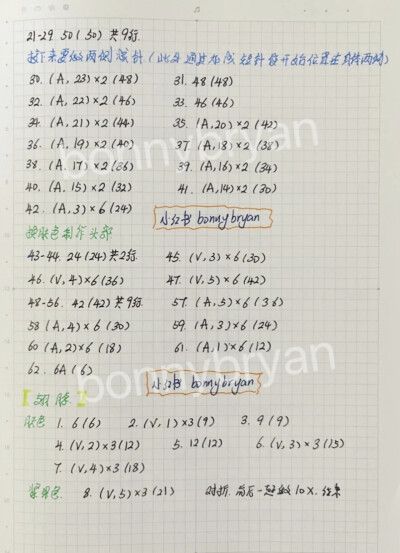 21-29. 50(50) 共9行.
接下来要做两侧减针(此处通过加减短针将开始位置在身体两侧)
30. (A, 23)×2 (48) 31. 48 (48)
32. (A, 22)×2 (46) 33. 46 (46)
34. (A, 21)×2 (44) 35. (A, 20)×2 (42)
36. (A, 19)×2 (40) 37. (A, 18)×2 (38)
38. (A, 17)×2 (36) 39. (A, 16)×2 (34)
40. (A, 15)×2 (32) 41. (A, 14)×2 (30)
42. (A, 3)×6 (24)
小红书 bonnybryan
换肤色制作头部
43-44. 24 (24) 共2行. 45. (V, 3)×6 (30)
46. (V, 4)×6 (36) 47. (V, 5)×6 (42)
48-56. 42 (42) 共9行. 57. (A, 5)×6 (36)
58 (A, 4)×6 (30) 59. (A, 3)×6 (24)
60 (A, 2)×6 (18) 61. (A, 1)×6 (12)
62. 6A (6)
小红书 bonnybryan
肤色 1. 6 (6) 2. (V, 1)×3 (9) 3. 9 (9)
4. (V, 2)×3 (12) 5. 12 (12) 6. (V, 3)×3 (15)
7. (V, 4)×3 (18)
8. (V, 5)×3 (21) 对折. 前后一起做10X. 结束
bonnybryan
bonnybryan